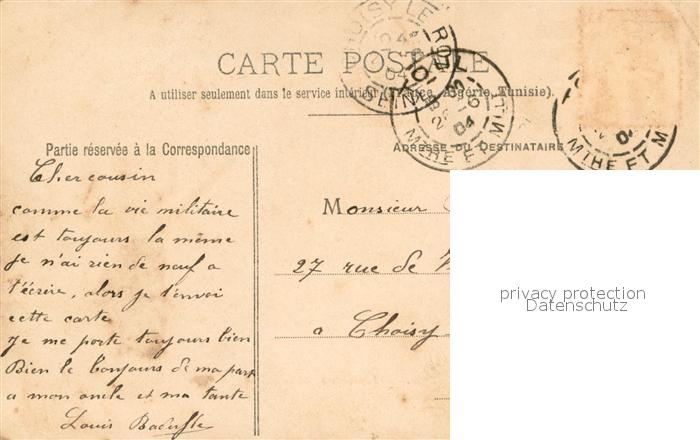 CARTE POSTALE
A utiliser seulement dans le service intérieur (France, Algérie, Tunisie).
CHOISY LE ROI
SEINE
TOUL
04
MTHE ET M
04
MTHE ET M
Partie réservée à la Correspondance
ADRESSE DU DESTINATAIRE
Cher cousin
comme la vie militaire
est toujours la même
je n'ai rien de neuf a
t'écrire, alors je t'envoi
cette carte
Je me porte toujours bien
Bien le bonjours de ma part
a mon oncle et ma tante
Louis
Monsieur
27 rue de
a Choisy
privacy protection
Datenschutz